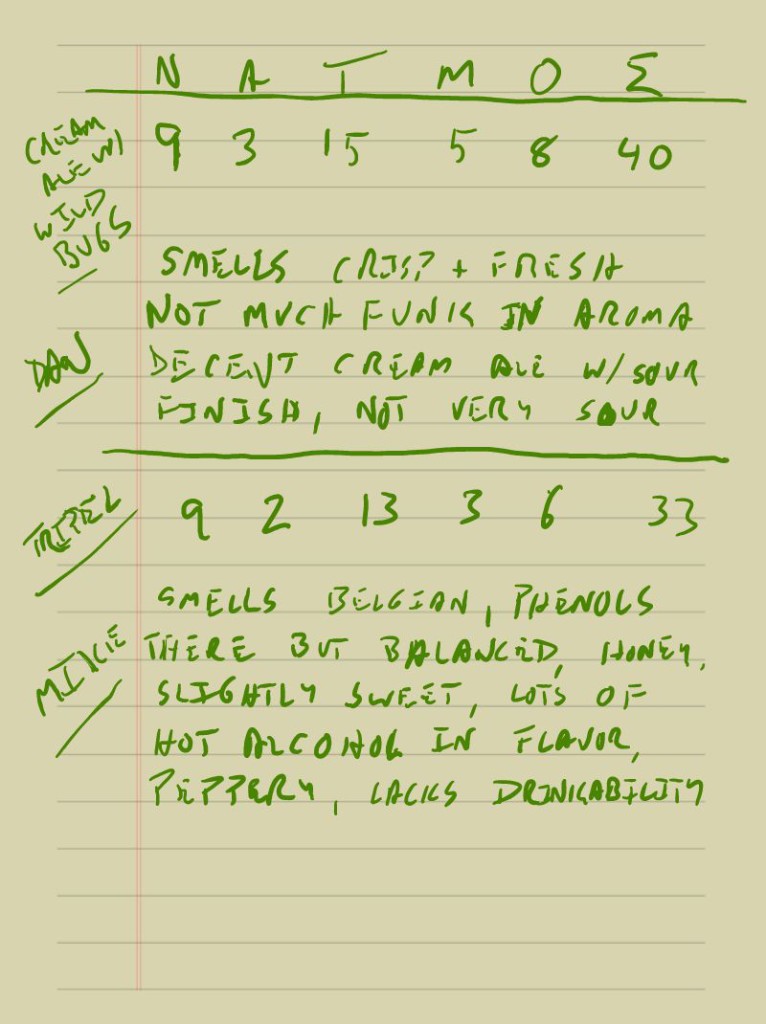 N A T M O Σ
CREAM
ALE W/
WILD
BUGS
9 3 15 5 8 40
SMELLS CRISP + FRESH
NOT MUCH FUNK IN AROMA
DAN
DECENT CREAM ALE W/ SOUR
FINISH, NOT VERY SOUR
TRIPEL
9 2 13 3 6 33
SMELLS BELGIAN, PHENOLS
MIKE
THERE BUT BALANCED, HONEY,
SLIGHTLY SWEET, LOTS OF
HOT ALCOHOL IN FLAVOR,
PEPPERY, LACKS DRINKABILITY